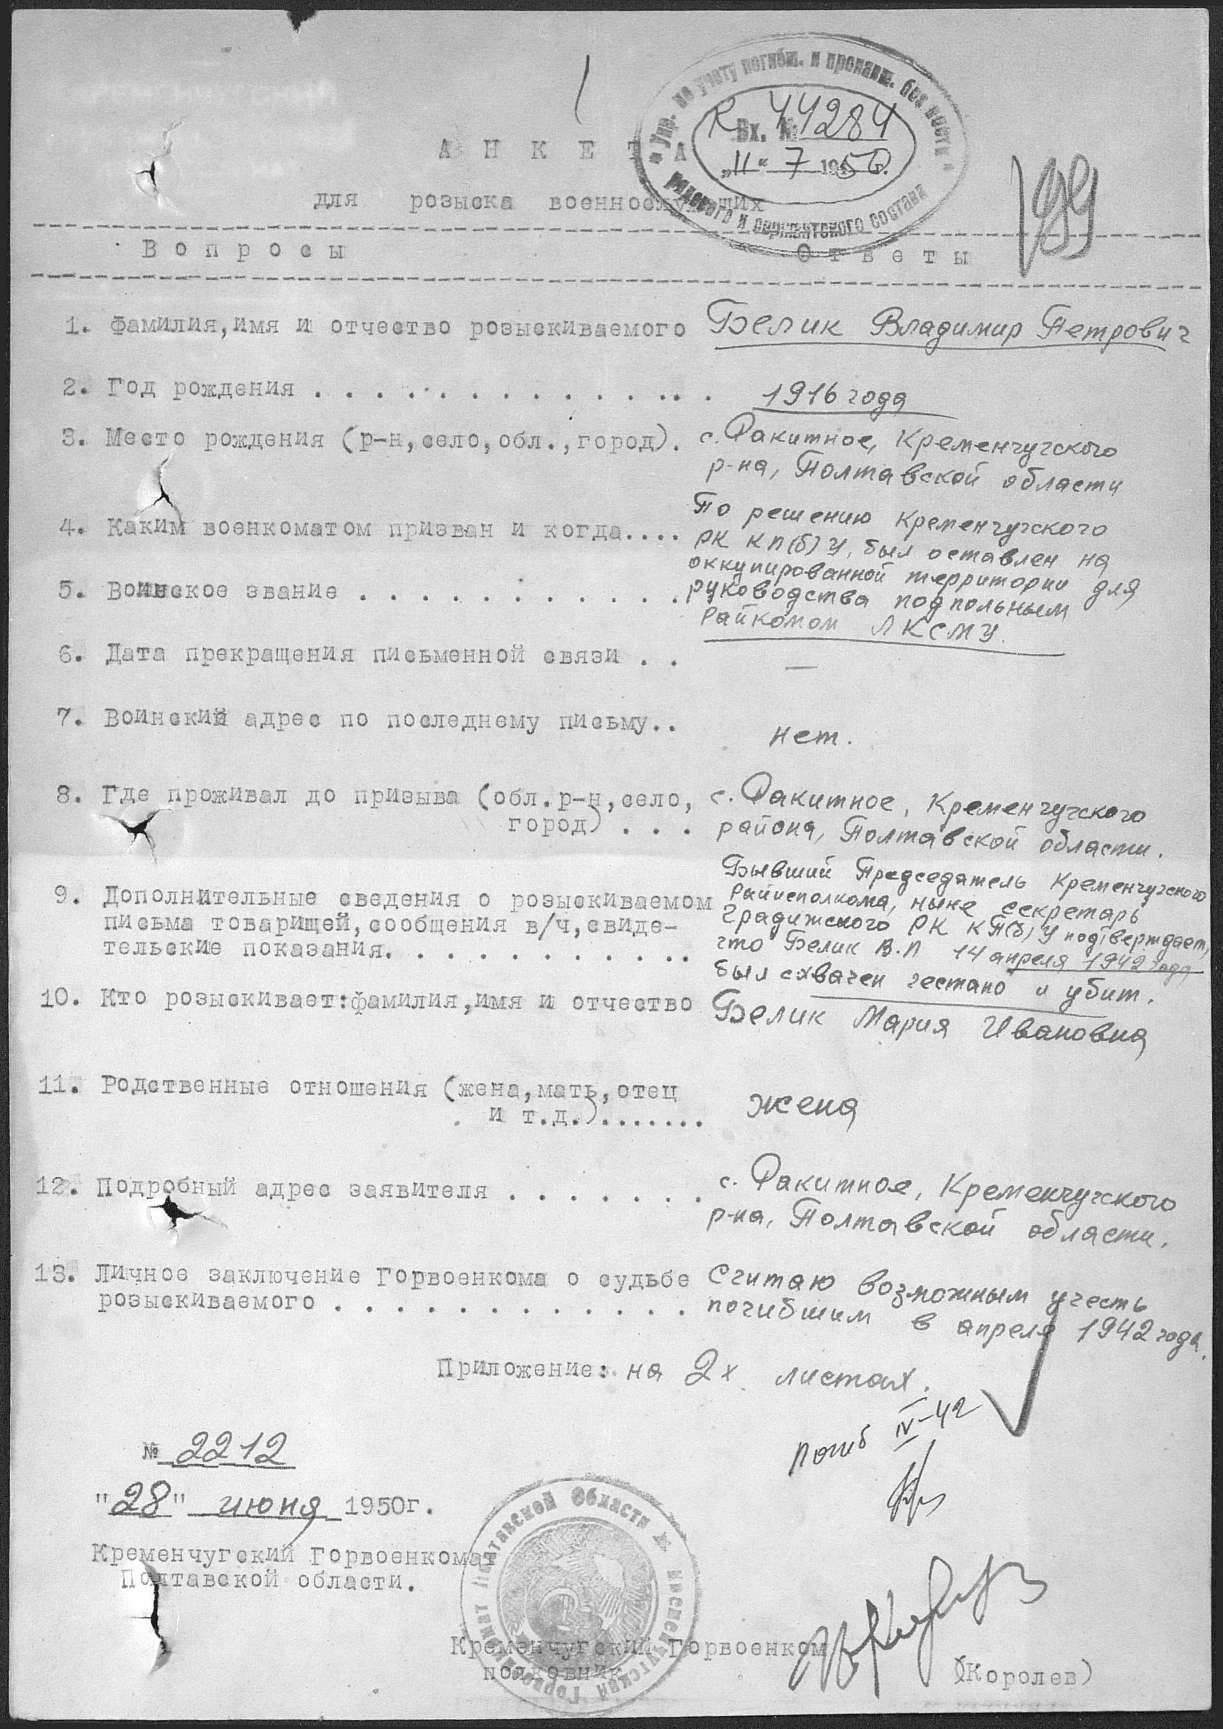 Упр. по учету погибш. и пропавш. без вести
рядового и сержантского состава
Вх. № 44284
"11" 7 1950.
199
АНКЕТА
для розыска военнослужащих
Вопросы Ответы
1. Фамилия, имя и отчество розыскиваемого Белик Владимир Петрович
2. Год рождения . . . . . . . . . . . . . . . . 1916 года
3. Место рождения (р-н, село, обл., город). с. Ракитное, Кременчугского
р-на, Полтавской области
4. Каким военкоматом призван и когда.... По решению Кременчугского
РК КП(б)У, был оставлен на
оккупированной территории для
5. Воинское звание . . . . . . . . . . . . руководства подпольным
Райкомом ЛКСМУ.
6. Дата прекращения письменной связи . . —
7. Воинский адрес по последнему письму.. нет.
8. Где проживал до призыва (обл. р-н, село, с. Ракитное, Кременчугского
город) . . . района, Полтавской области.
9. Дополнительные сведения о розыскиваемом Бывший Председатель Кременчугского
письма товарищей, сообщения в/ч, свиде- Райисполкома, ныне секретарь
тельские показания. . . . . . . . . . . Градижского РК КП(б)У подтверждает,
что Белик В.П 14 апреля 1942 года
был схвачен гестапо и убит.
10. Кто розыскивает: фамилия, имя и отчество Белик Мария Ивановна
11. Родственные отношения (жена, мать, отец
и т.д.)....... жена
12. Подробный адрес заявителя . . . . . . . с. Ракитное, Кременчугского
р-на, Полтавской области.
13. Личное заключение Горвоенкома о судьбе Считаю возможным учесть
розыскиваемого . . . . . . . . . . . . . погибшим в апреле 1942 года.
Приложение: на 2х листах.
погиб IV-42
№ 2212
"28" июня 1950г.
Кременчугский Горвоенкомат
Полтавской области.
Кременчугский Горвоенкомат Полтавской Области
Кременчугский Горвоенком
полковник (Королев)